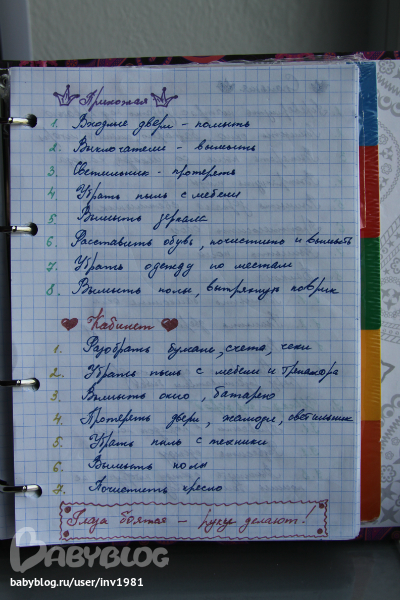 Прихожая
1. Входные двери - помыть
2. Выключатели - вымыть
3. Светильник - протереть
4. Убрать пыль с мебели
5 Вымыть зеркала
6. Расставить обувь, почистить и вымыть
7. Убрать одежду по местам
8. Вымыть полы, вытряхнуть коврик
Кабинет
1. Разобрать бумаги, счета, чеки
2. Убрать пыль с мебели и тренажора
3. Вымыть окно, батарею
4. Протереть двери, жалюзи, светильник
5 Убрать пыль с техники
6. Вымыть полы
7. Почистить кресло
Глаза боятся - руки делают!
BABYBLOG
babyblog.ru/user/inv1981